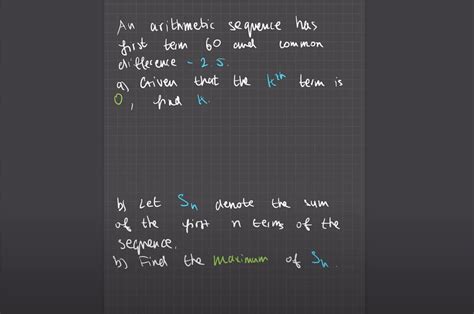 An arithmetic sequence has
first term 60 and common
difference -2.5.
a) Given that the kth term is
0, find k.
b) Let Sn denote the sum
of the first n terms of the
sequence.
b) Find the maximum of Sn.